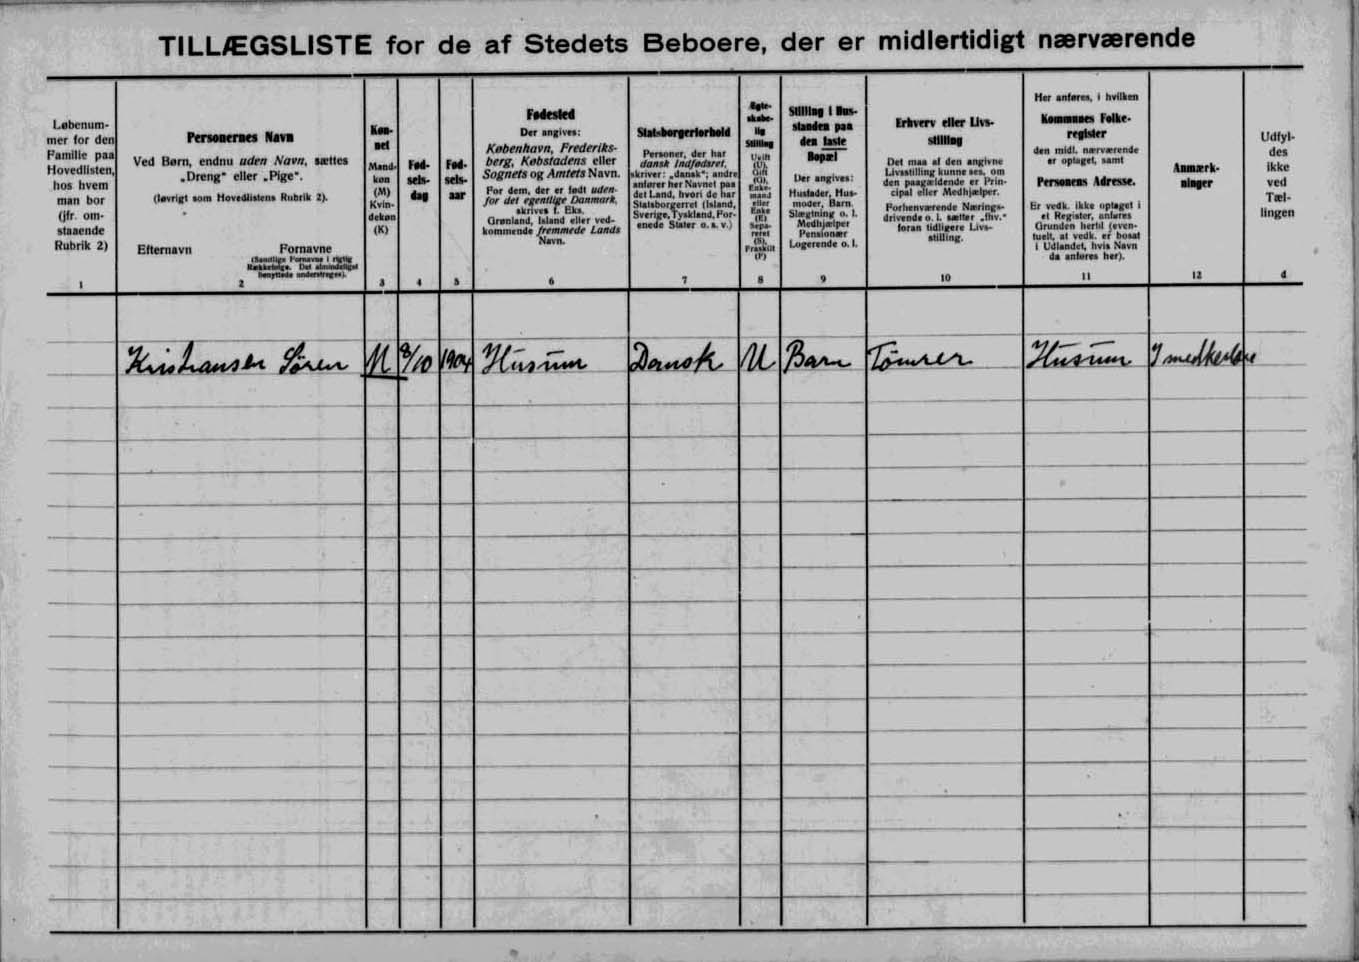 TILLÆGSLISTE for de af Stedets Beboere, der er midlertidigt nærværende
Løbenum-
mer for den
Familie paa
Hovedlisten,
hos hvem
man bor
(jfr. om-
staaende
Rubrik 2)
1
Personernes Navn
Ved Børn, endnu uden Navn, sættes
„Dreng" eller „Pige".
(Iøvrigt som Hovedlistens Rubrik 2).
Efternavn Fornavne
(Samtlige Fornavne i rigtig
Rækkefølge. Det almindeligst
benyttede understreges).
2
Køn-
net
Mand-
køn
(M)
Kvin-
dekøn
(K)
3
Fød-
sels-
dag
4
Fød-
sels-
aar
5
Fødested
Der angives:
København, Frederiks-
berg, Købstadens eller
Sognets og Amtets Navn.
For dem, der er født uden-
for det egentlige Danmark,
skrives f. Eks.
Grønland, Island eller ved-
kommende fremmede Lands
Navn.
6
Statsborgerforhold
Personer, der har
dansk Indfødsret,
skriver: „dansk"; andre
anfører her Navnet paa
det Land, hvori de har
Statsborgerret (Island,
Sverige, Tyskland, For-
enede Stater o. s. v.)
7
Ægte-
skabe-
lig
Stilling
Ugift
(U),
Gift
(G),
Enke-
mand
eller
Enke
(E)
Sepa-
reret
(S),
Fraskilt
(F)
8
Stilling i Hus-
standen paa
den faste
Bopæl
Der angives:
Husfader, Hus-
moder, Barn,
Slægtning o. l.
Medhjælper
Pensionær
Logerende o. l.
9
Erhverv eller Livs-
stilling
Det maa af den angivne
Livsstilling kunne ses, om
den paagældende er Prin-
cipal eller Medhjælper.
Forhenværende Nærings-
drivende o. l. sætter „fhv."
foran tidligere Livs-
stilling.
10
Her anføres, i hvilken
Kommunes Folke-
register
den midl. nærværende
er optaget, samt
Personens Adresse.
Er vedk. ikke optaget i
et Register, anføres
Grunden hertil (even-
tuelt, at vedk. er bosat
i Udlandet, hvis Navn
da anføres her).
11
Anmærk-
ninger
12
Udfyl-
des
ikke
ved
Tæl-
lingen
d
Kristiansen Søren M 8/10 1904 Husum Dansk U Barn Tømrer Husum